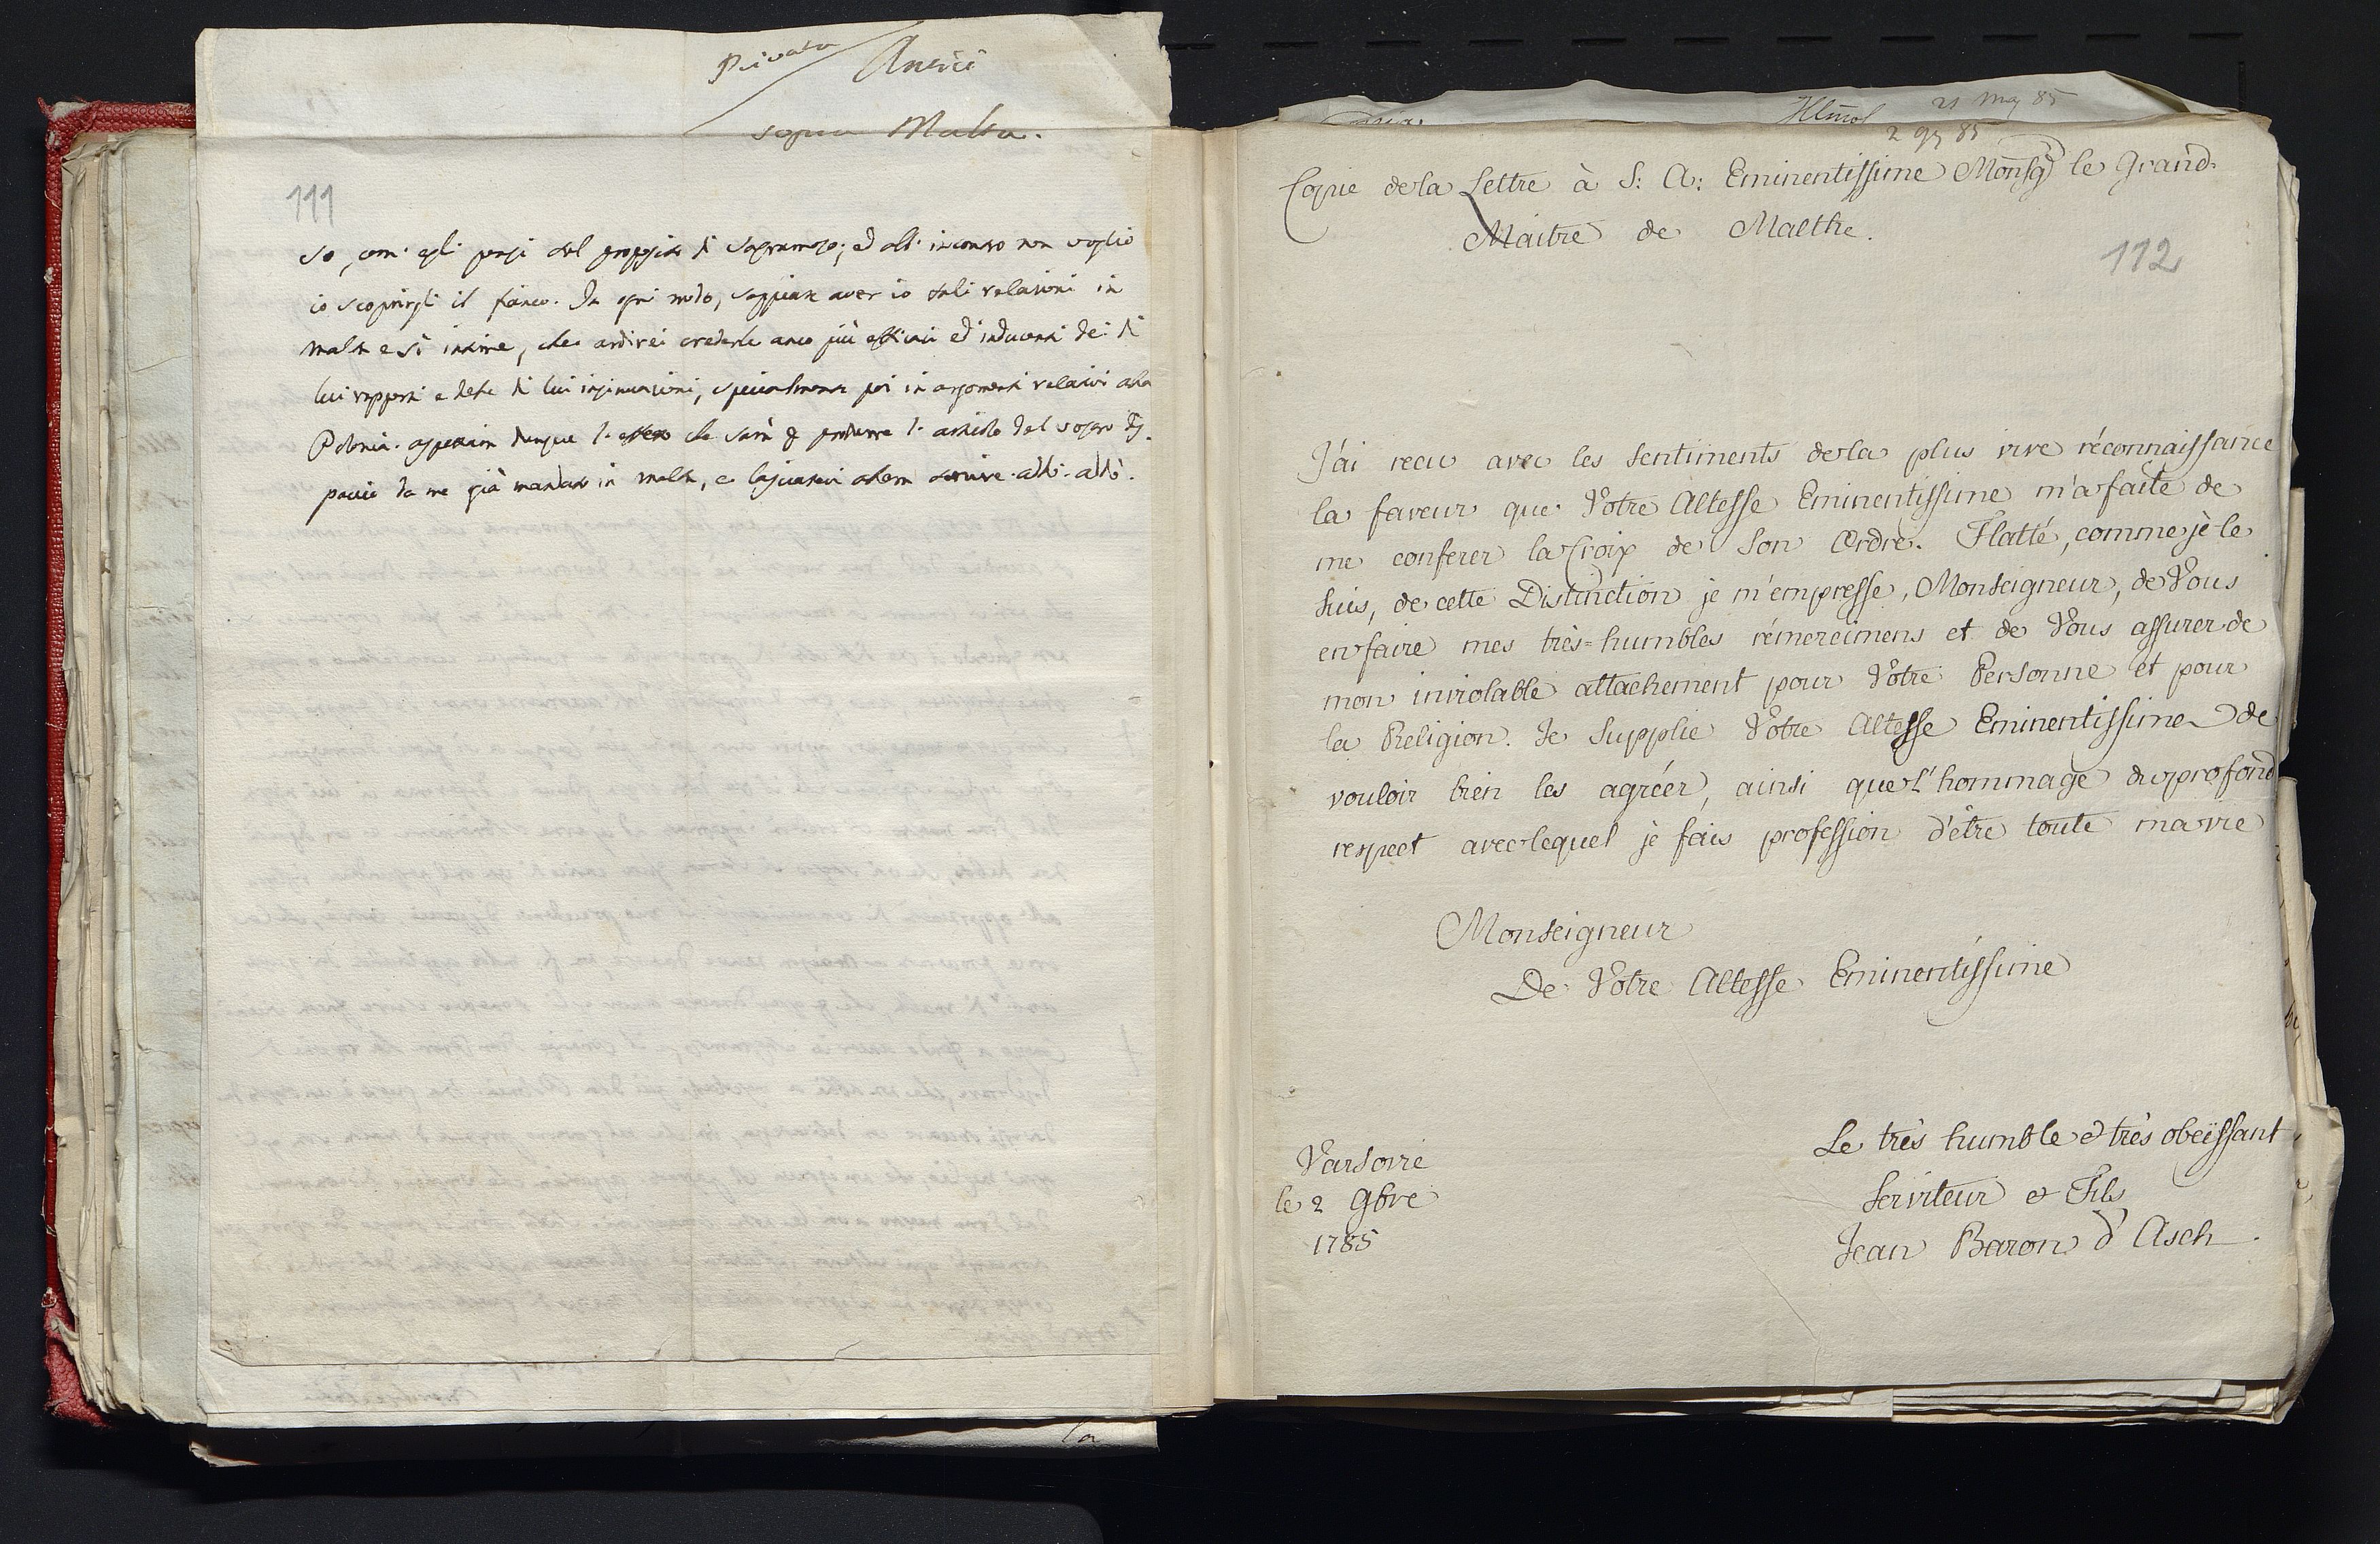 Privata
Antici
sopra Malta.
111
so, com' egli pensi del proggetto di Sagramoso; ed all' incontro non voglio
io scoprirgli il fianco. In ogni modo, sappiate aver io tali relazioni in
Malta e sì intime, che ardirei crederle anco più efficaci ed inducenti dei di
lui rapporti e delle di lui insinuazioni, specialmente poi in argomenti relativi alla
Polonia. aspettiam dunque l' che sarà p produrre l' articolo del vostro
da me già mandato in Malta, e lasciatevi allora servire. addio. addio.
21 mag 85
2 9b 85
Copie de la Lettre à S: A: Eminentissime Monsgr le Grand-
Maitre de Malthe.
112
J'ai recu avec les sentiments de la plus vive réconnaissance
la faveur que Votre Altesse Eminentissime m'a faite de
me conferer la Croix de Son Ordre. Flatté, comme je le
suis, de cette Distinction je m'empresse, Monseigneur, de Vous
en faire mes très=humbles rémercimens et de Vous assurer de
mon inviolable attachement pour Votre Personne et pour
la Religion. Je supplie Votre Altesse Eminentissime de
vouloir bien les agréer, ainsi que l'hommage du profond
respect avec lequel je fais profession d'être toute ma vie
Monseigneur
De Votre Altesse Eminentissime
Le très humble et très obeïssant
Serviteur et Fils
Jean Baron d'Asch.
Varsovie
le 2 9bre
1785
la